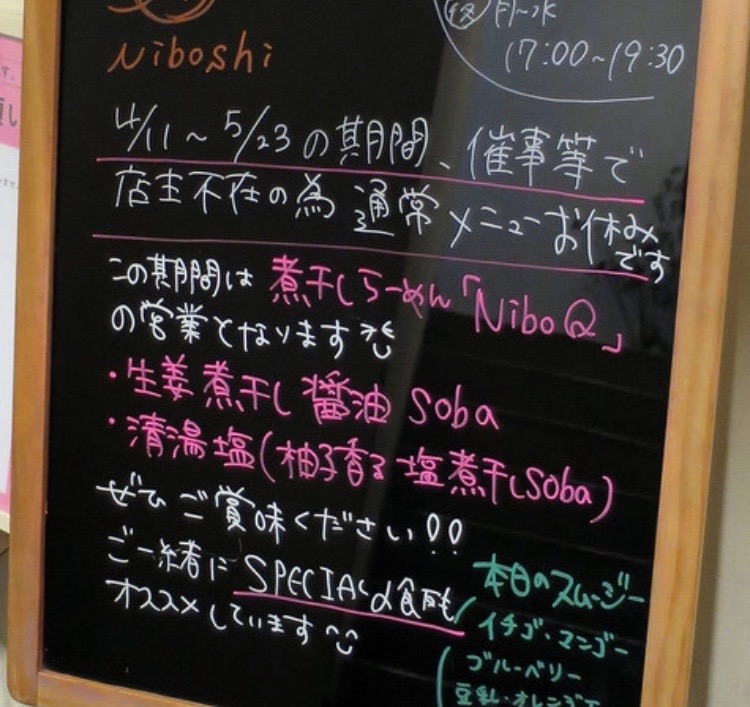 Niboshi
夜 月〜水
17:00〜19:30
4/11〜5/23の期間、催事等で
店主不在の為 通常メニューお休み
です
この期間は 煮干しらーめん「NiboQ」
の営業となります
・生姜煮干し醤油 soba
・清湯塩(柚子香る塩煮干しSoba)
ぜひご賞味ください!!
ご一緒に SPECIAL
オススメしています
本日のスムージー
イチゴ・マンゴー
ブルーベリー
豆乳・オレンジ